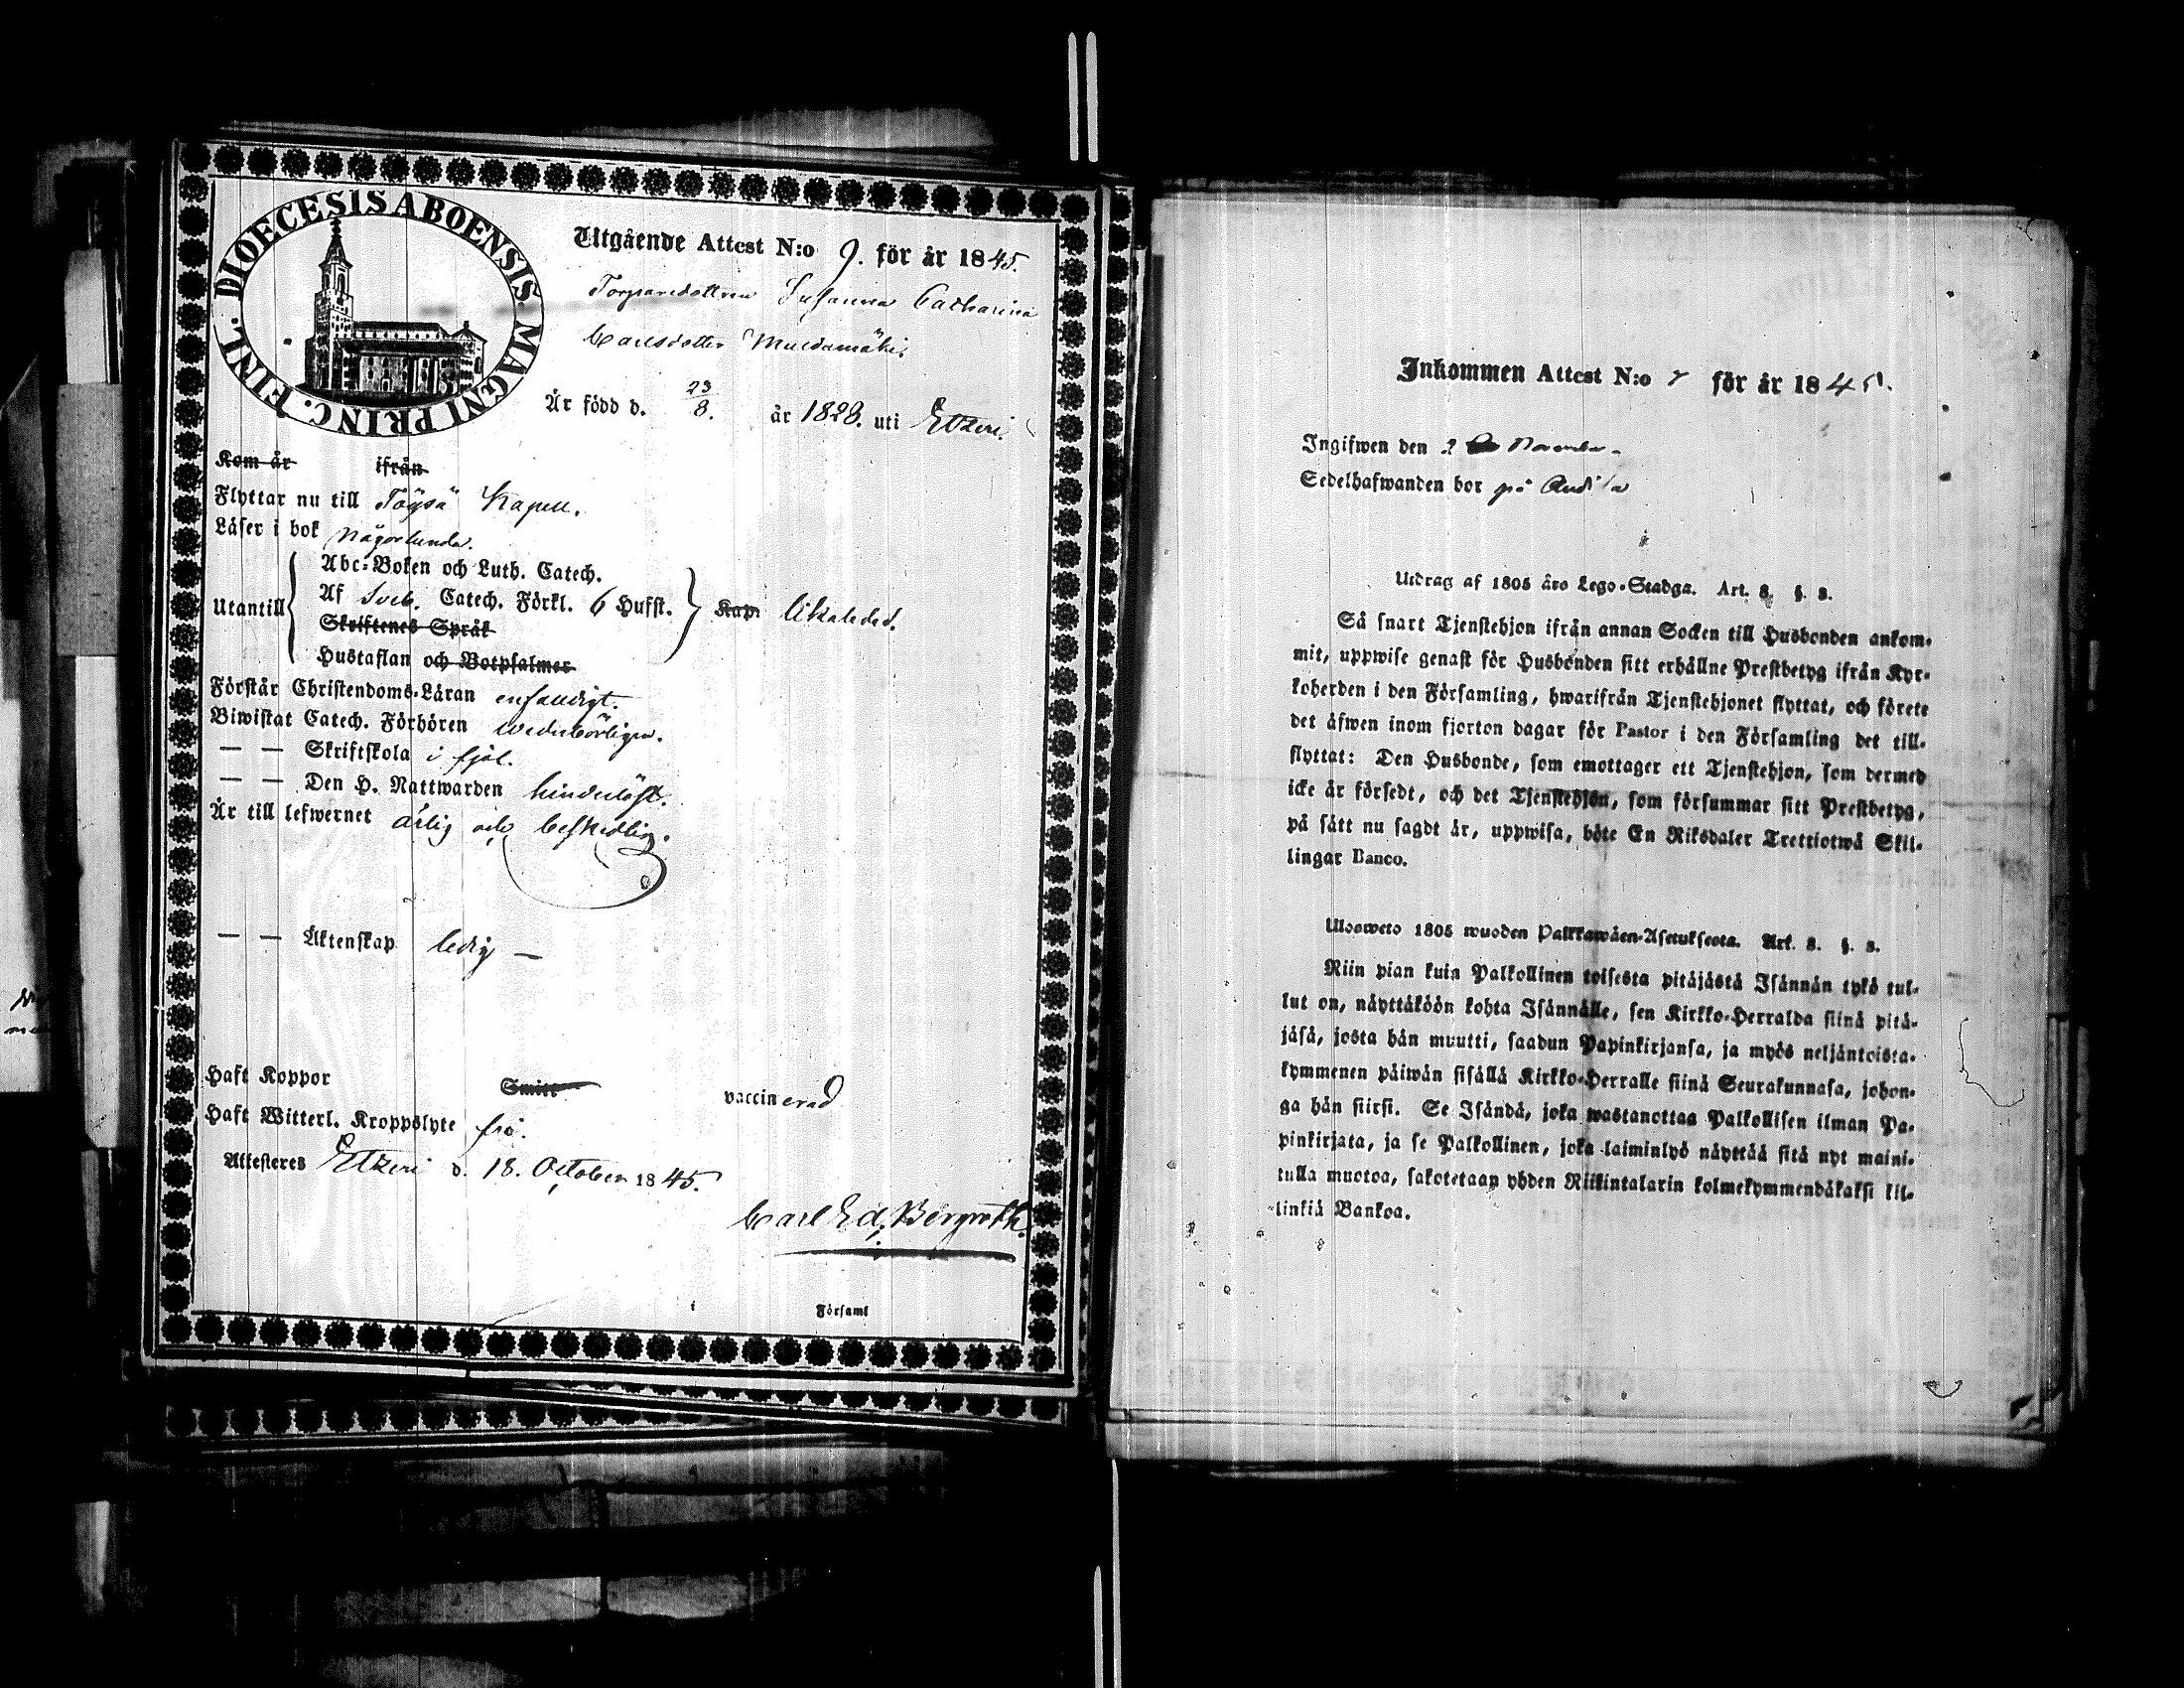 DIOECESIS ABOENSIS. MAGNI PRINC. FINL.
Utgående Attest N:o 9. för år 1845.
Torparedottren Susanna Catharina
Carlsdotter
Är född d. 23/8. år 1828. uti Etzeri.
Kom år ifrån
Flyttar nu till Töysä Kapell.
Läser i bok någorlunda.
Utantill
Abc-Boken och Luth. Catech.
Af Sveb. Catech. Förkl. 6 Hufst.
Skriftenes Språk
Hustaflan och Botpsalmer
Kap. likaledes.
Förstår Christendoms-Läran enfaldigt.
Biwistat Catech. Förhören wederbörligen.
— — Skriftskola i fjol.
— — Den H. Nattwarden hinderlöst.
Är till lefwernet ärlig och beskedlig.
— — Äktenskap ledig —
Haft Koppor Smitt vaccinerad
Haft Witterl. Kroppslyte fri.
Attesteres Etzeri d. 18. October 1845.
Carl Ed. Bergroth.
i Församl
Inkommen Attest N:o för år 1845.
Ingifwen den 2 November
Sedelhafwanden bor på
Utdrag af 1805 års Lego-Stadga. Art. 8. §. 8.
Så snart Tjenstehjon ifrån annan Socken till Husbonden ankom-
mit, uppwise genast för Husbonden sitt erhållne Prestbetyg ifrån Kyr-
koherden i den Församling, hwarifrån Tjenstehjonet flyttat, och förete
det äfwen inom fjorton dagar för Pastor i den Församling det till-
flyttat: Den Husbonde, som emottager ett Tjenstehjon, som dermed
icke är försedt, och det Tjenstehjon, som försummar sitt Prestbetyg,
på sätt nu sagdt är, uppwisa, böte En Riksdaler Trettiotwå Skil-
lingar Banco.
Ulosweto 1805 wuoden Palkkawäen-Asetuksesta. Art. 8. §. 8.
Niin pian kuin Palkollinen toisesta pitäjästä Isännän tykö tul-
lut on, näyttäköön kohta Isännälle, sen Kirkko-Herralda siinä pitä-
jäsä, josta hän muutti, saadun Papinkirjansa, ja myös neljäntoista-
kymmenen päiwän sisällä Kirkko-Herralle siinä Seurakunnasa, johon-
ga hän siirsi. Se Isändä, joka wastanottaa Palkollisen ilman Pa-
pinkirjata, ja se Palkollinen, joka laiminlyö näyttää sitä nyt maini-
tulla muotoa, sakotetaan yhden Riikintalarin kolmekymmendäkaksi kil-
linkiä Bankoa.